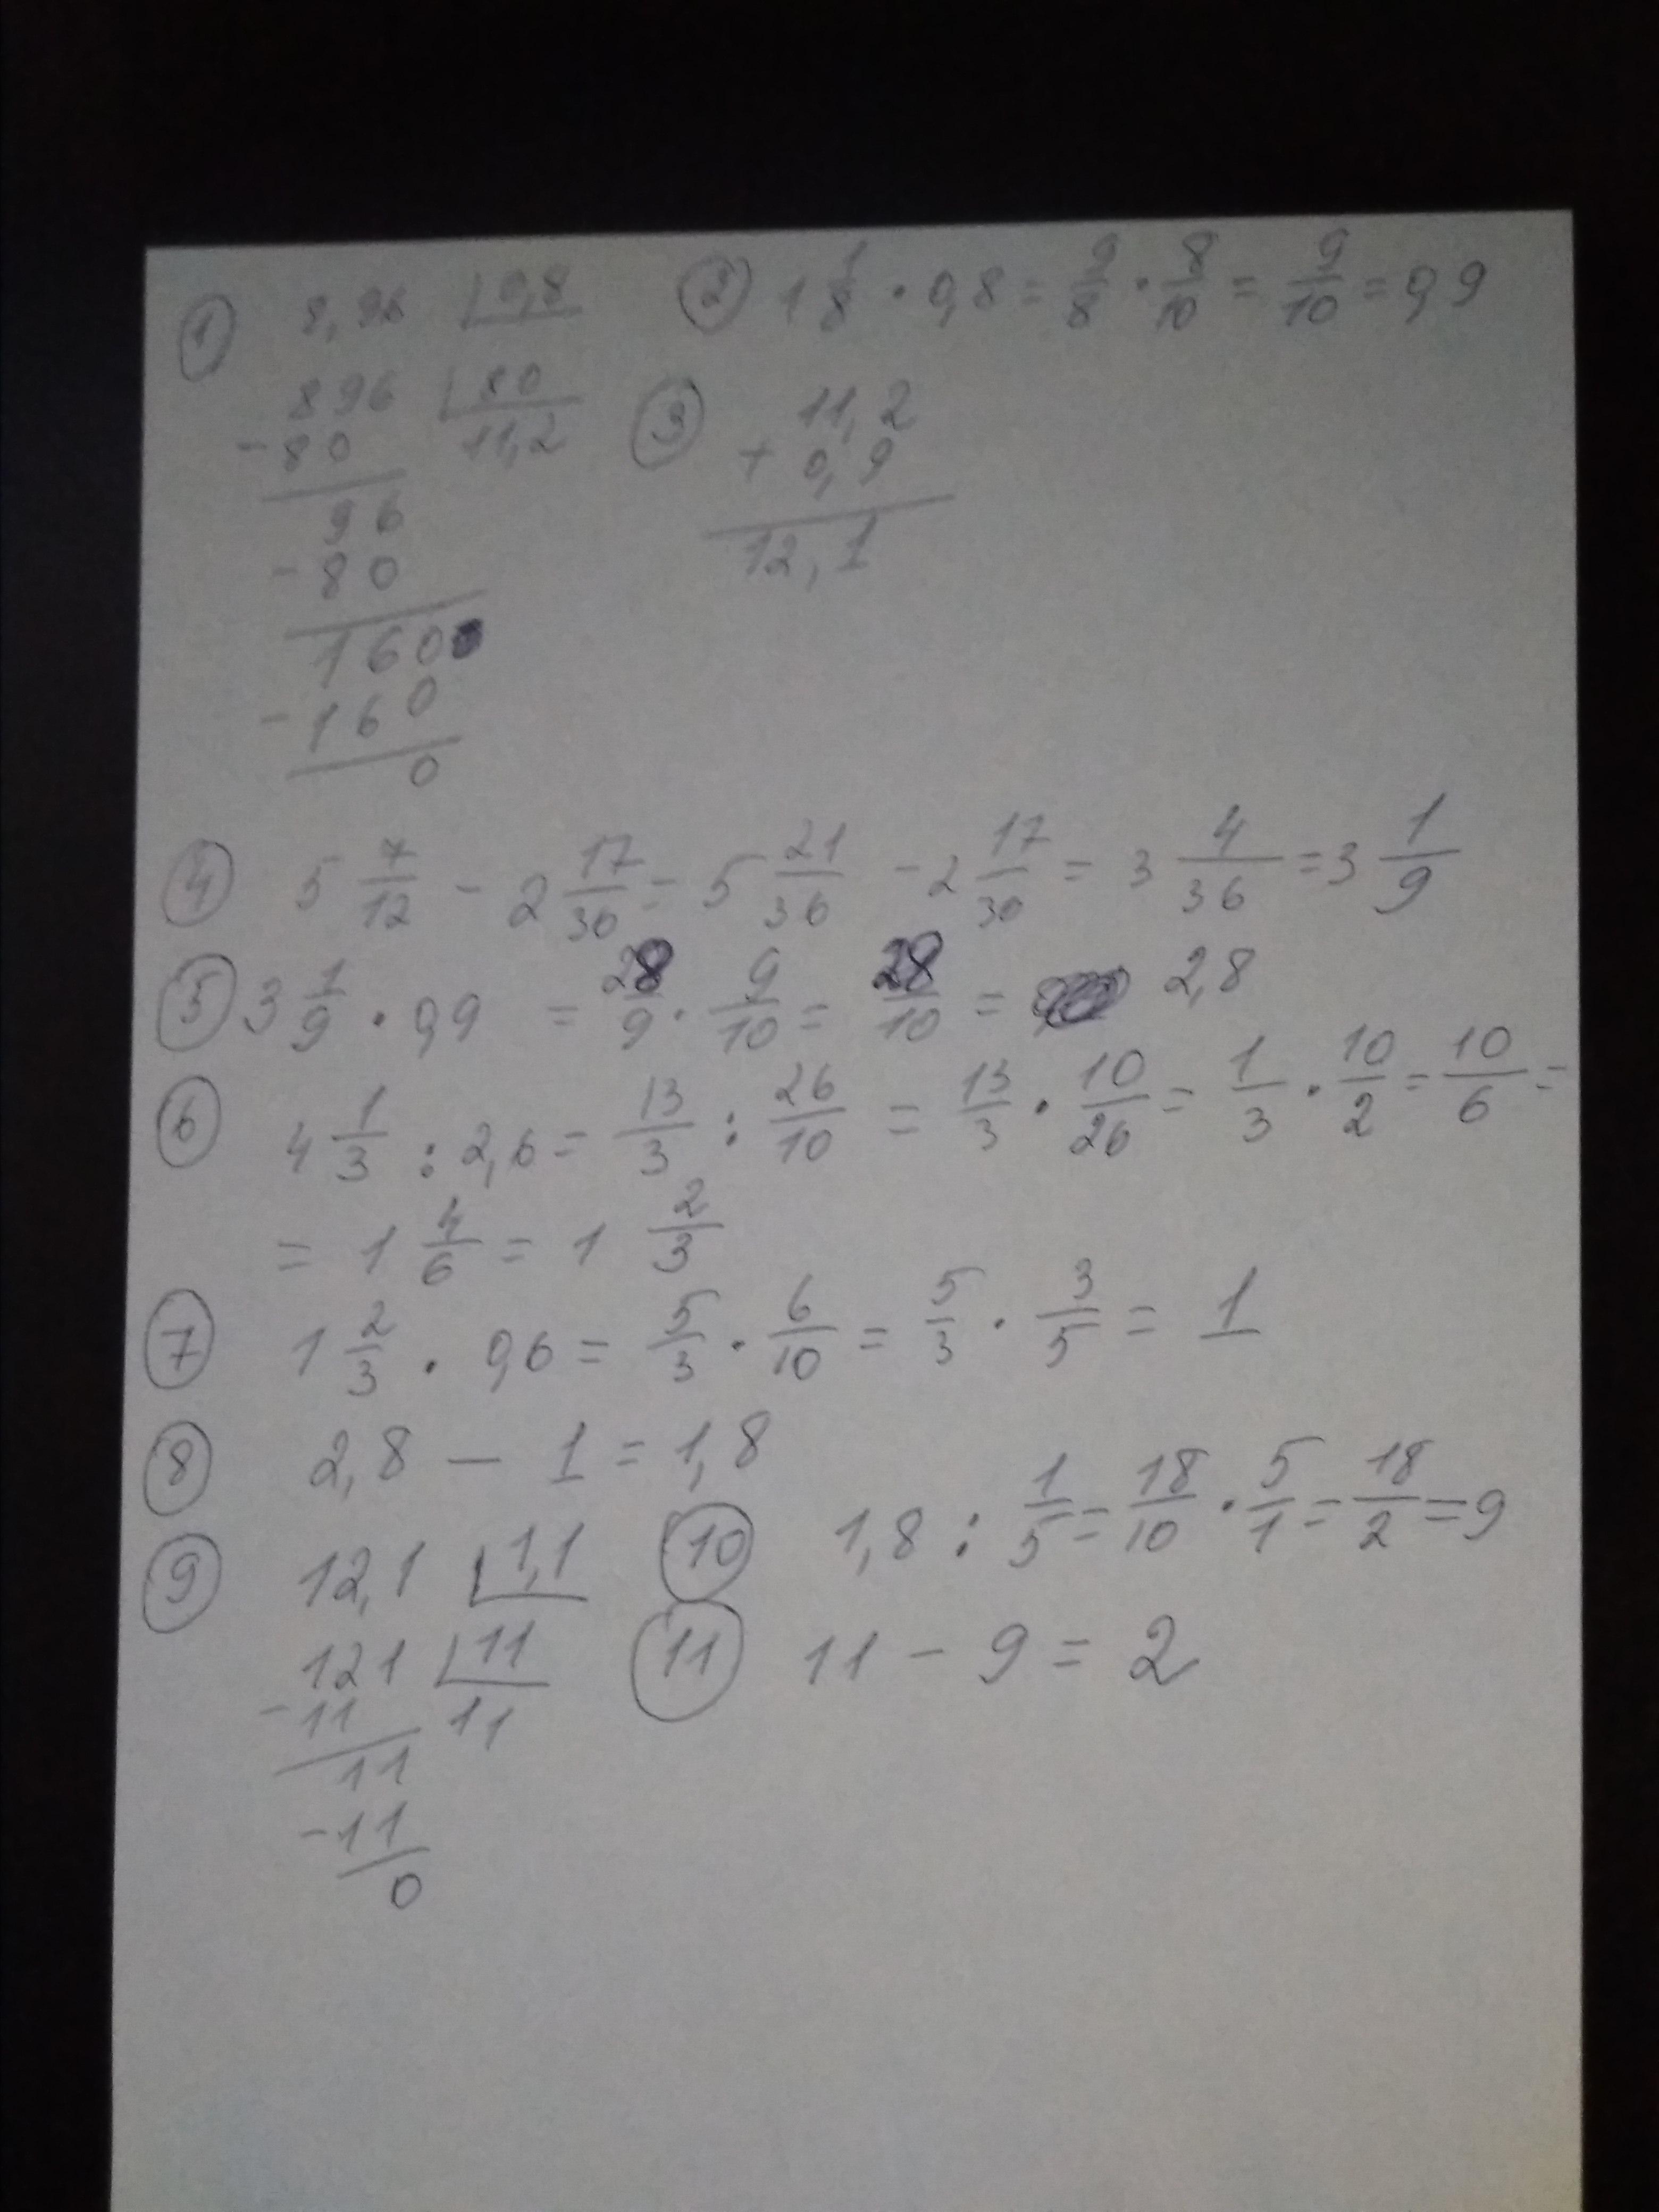 ① 8,96 | 0,8
896 | 80
- 80 11,2
96
- 80
160
- 160
0
② 1 1/8 · 0,8 = 9/8 · 8/10 = 9/10 = 0,9
③ 11,2
+ 0,9
12,1
④ 5 7/12 - 2 17/36 = 5 21/36 - 2 17/36 = 3 4/36 = 3 1/9
⑤ 3 1/9 · 0,9 = 28/9 · 9/10 = 28/10 = 2,8
⑥ 4 1/3 : 2,6 = 13/3 : 26/10 = 13/3 · 10/26 = 1/3 · 10/2 = 10/6 =
= 1 4/6 = 1 2/3
⑦ 1 2/3 · 0,6 = 5/3 · 6/10 = 5/3 · 3/5 = 1
⑧ 2,8 - 1 = 1,8
⑨ 12,1 | 1,1
121 | 11
- 11 11
11
- 11
0
⑩ 1,8 : 1/5 = 18/10 · 5/1 = 18/2 = 9
⑪ 11 - 9 = 2